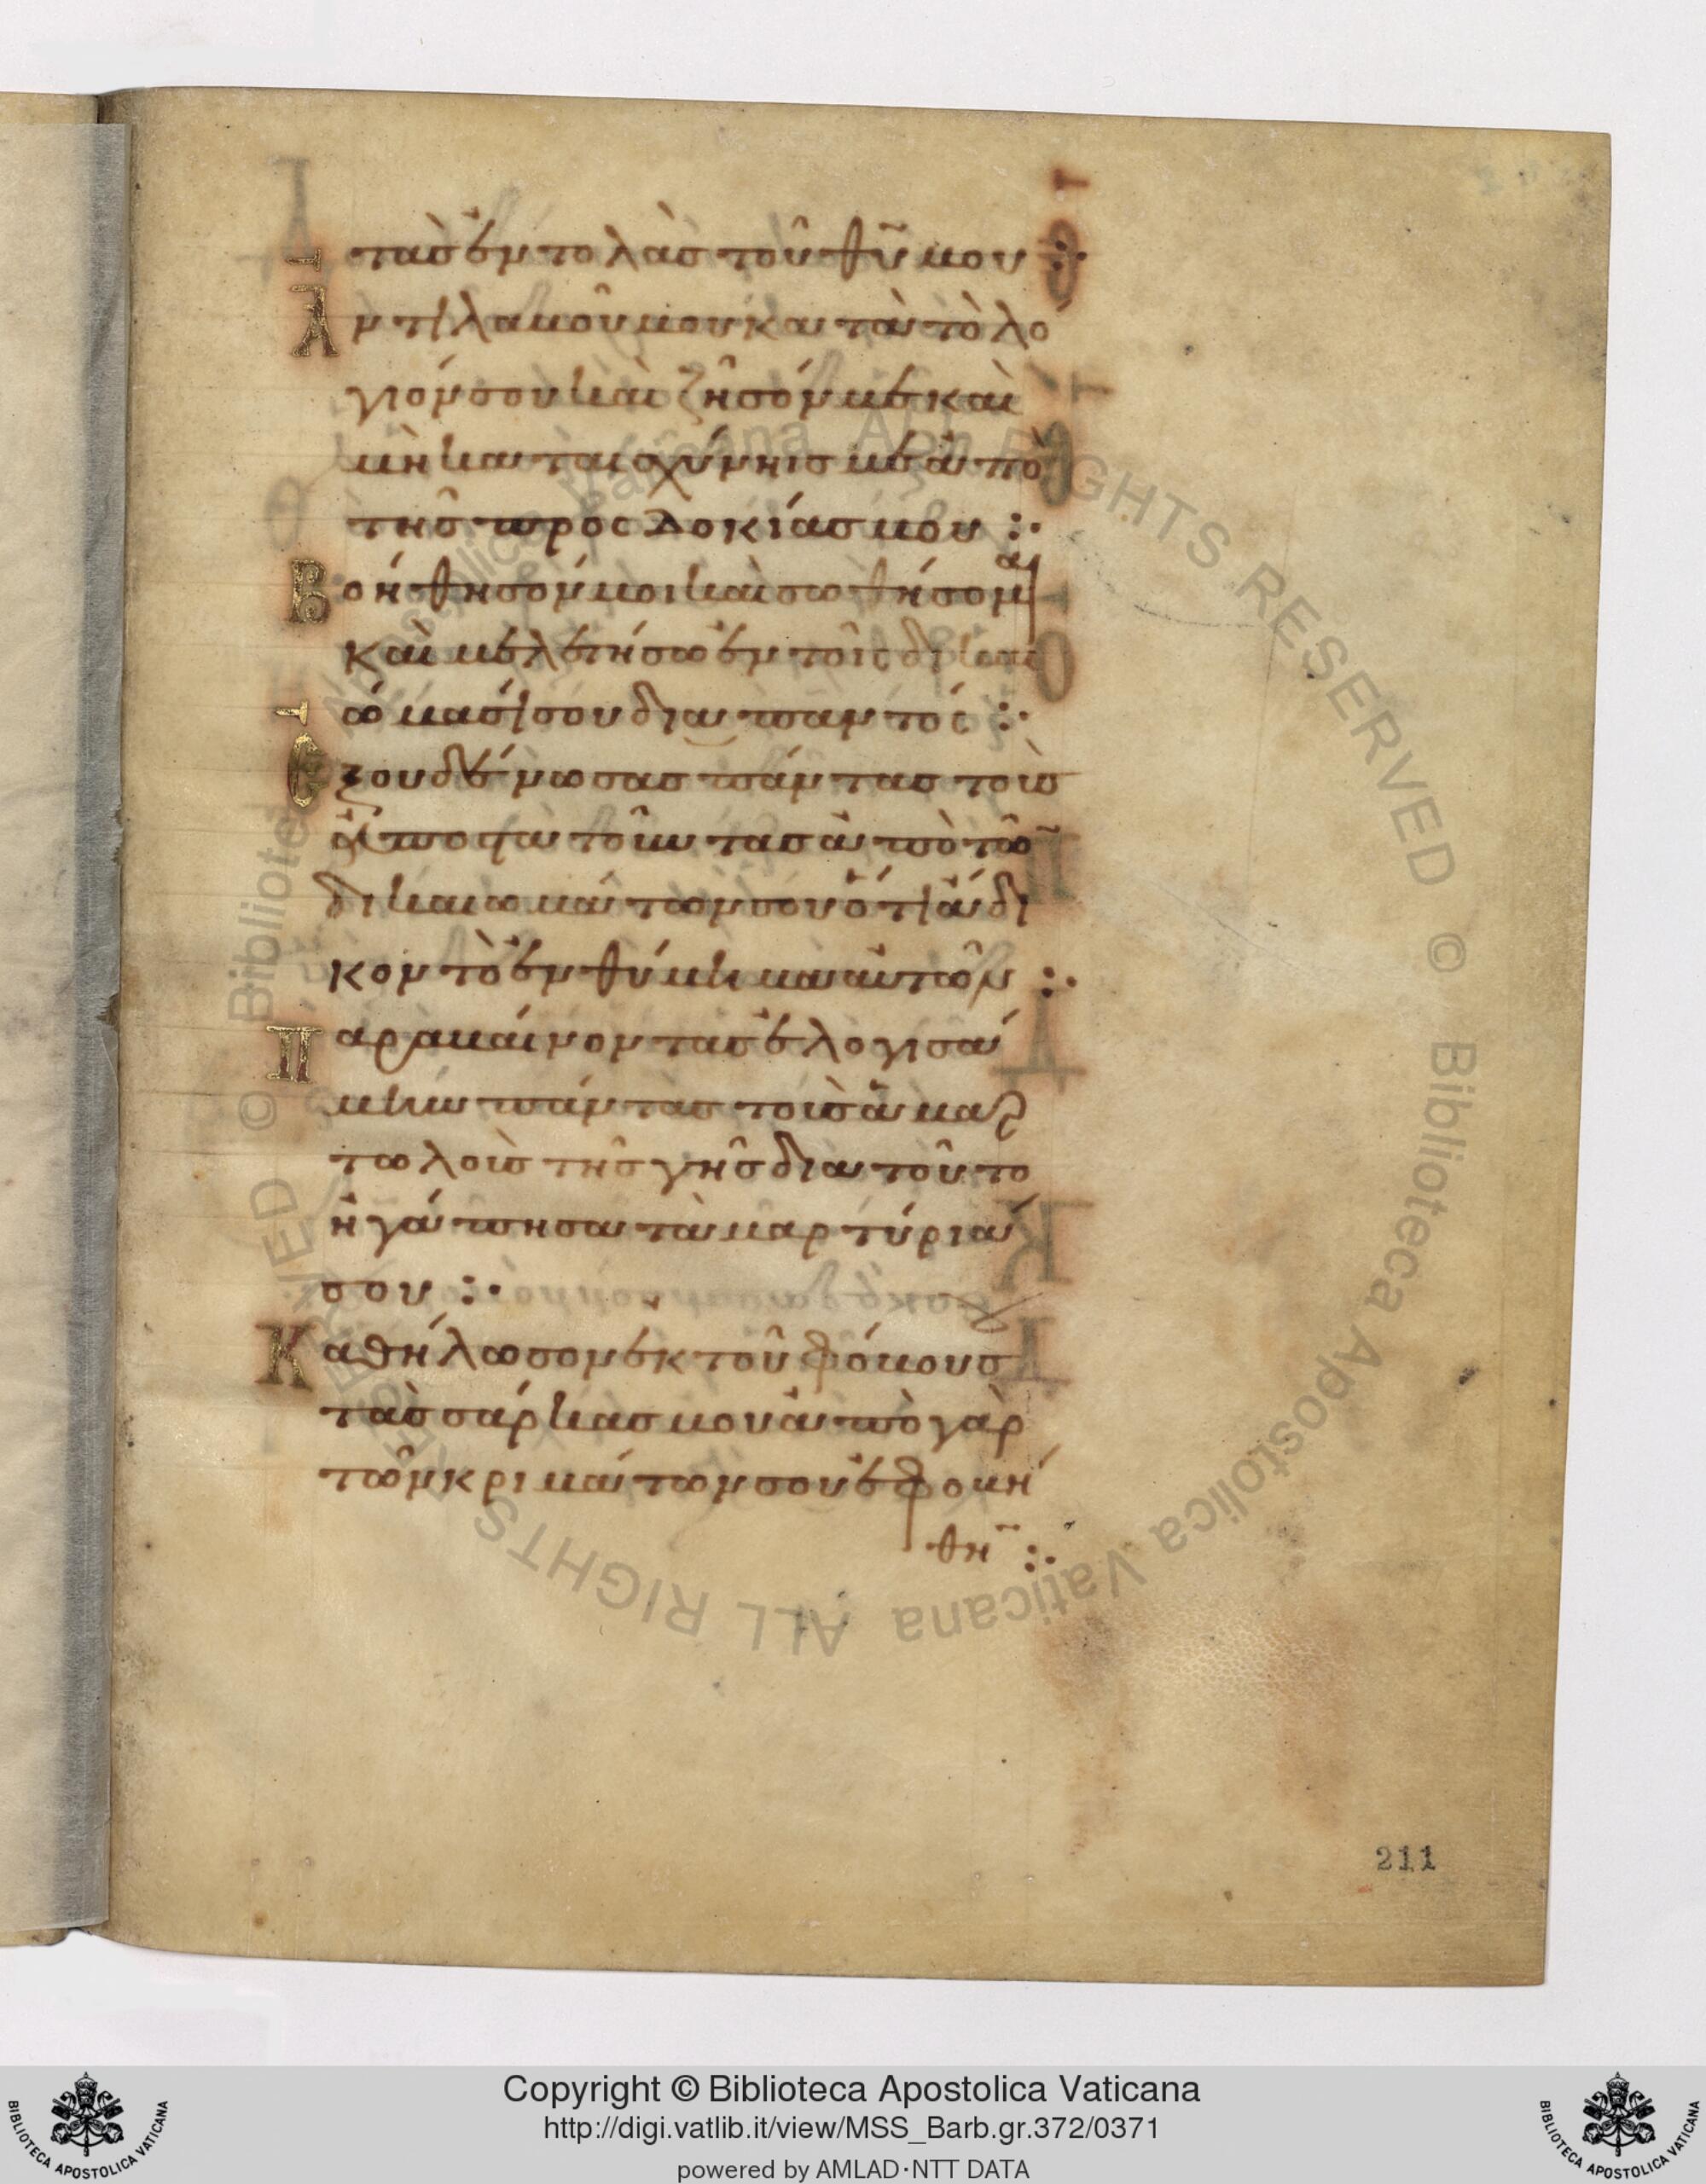 τὰσ ἐντολὰσ τοῦ θῦ μου :·
Ἀντιλαβοῦ μου κατὰ τὸ λό
γιόν σου καὶ ζῆσόν με καὶ
μὴ καταισχύνηισ με ἀπὸ
τῆσ προσδοκίασ μου :·
Βοήθησόν μοι καὶ σωθήσομαι
καὶ μελετήσω ἐν τοῖς δικαι
ώμασί σου διαπαντός :·
Ἐξουδένωσασ πάντασ τοὺσ
ἀποστατοῦντασ ἀπὸ τῶ
δικαιωμάτων σου ὅτι ἄδι
κον τὸ ἐνθύμημα αὐτῶν :·
Παραβαίνοντασ ἐλογισά
μην πάντασ τοὺσ ἁμαρ
τωλοὺσ τῆσ γῆσ διατοῦτο
ἠγάπησα τὰ μαρτύρια
σου :·
Καθήλωσον ἐκ τοῦ φόβου σ
τὰσ σάρκασ μου ἀπὸ γὰρ
τῶν κριμάτων σου ἐφοβή
θην :·
211
Copyright © Biblioteca Apostolica Vaticana
http://digi.vatlib.it/view/MSS_Barb.gr.372/0371
powered by AMLAD·NTT DATA
BIBLIOTECA APOSTOLICA VATICANA
BIBLIOTECA APOSTOLICA VATICANA
© Biblioteca Apostolica Vaticana ALL RIGHTS RESERVED
© Biblioteca Apostolica Vaticana ALL RIGHTS RESERVED